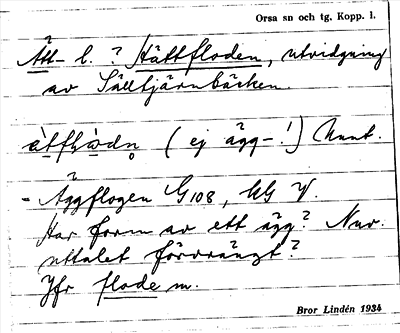 Orsa sn och tg. Kopp. l.
Ått- l. ? Hättfloden, utvidgning
av Sälltjärnbäcken.
(ej ägg-!)
- Äggflogen G108, UG V.
Har form av ett ägg? Nuv.
uttalet förvrängt?
Jfr flode m.
Bror Lindén 1934